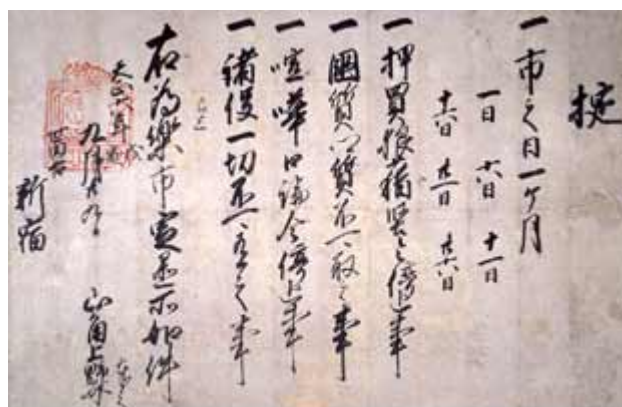 掟
一 市之日一ヶ月
一日 六日 十一日
十六日 廿一日 廿六日
一 押買狼藉堅令停止事
一 國質郷質不可取之事
一 喧嘩口論令停止事
一 諸役一切不可有之事
已上
右為樂市定置所如件
天正六年戊寅
九月廿九日
山角上野介奉之
新宿